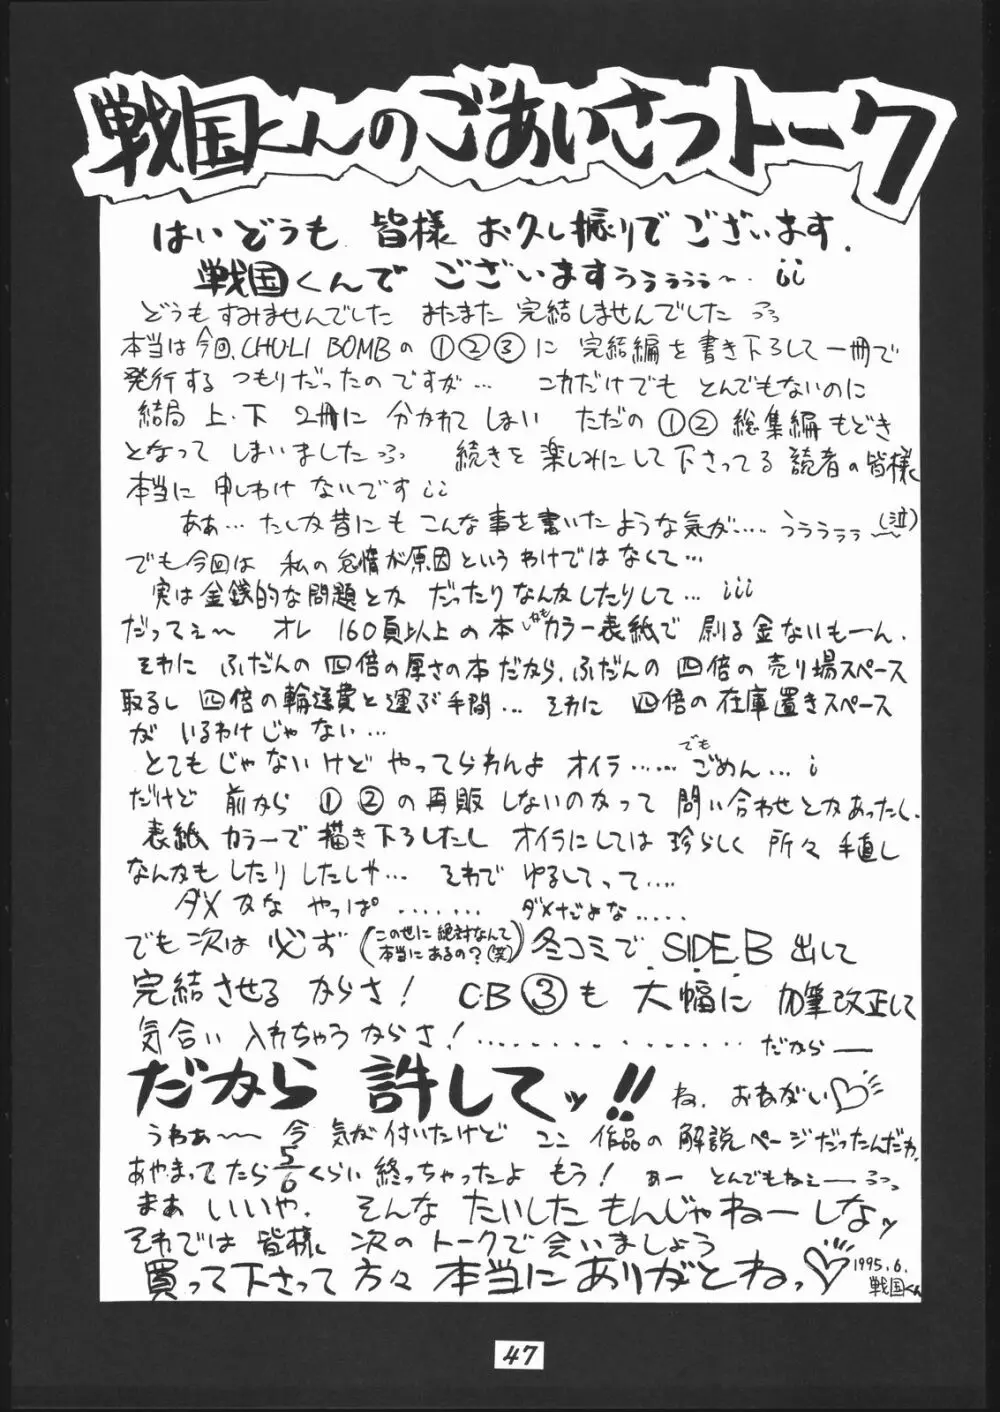 戦国くんのごあいさつトーク
はいどうも 皆様 お久し振りでございます.
戦国くんで ございますぅぅぅぅぅ〜.. ii
どうもすみませんでした またまた完結しませんでした
本当は今回、CHU-LI BOMBの ①②③に 完結編を書き下ろして一冊で
発行する つもりだったのですが… これだけでも とんでもないのに
結局 上・下 2冊に 分かれてしまい ただの ①② 総集編もどき
となって しまいました 続きを 楽しみにして下さってる 読者の皆様
本当に 申しわけ ないです ii
ああ… たしか昔にも こんな事を書いたような気が…… うぅぅぅぅ (泣)
でも今回は 私の怠惰が原因というわけではなくて…
実は金銭的な問題とか だったりなんかしたりして… iii
だってぇ〜 オレ 160頁以上の本 しかもカラー表紙で 刷る金ないもーん.
それに ふだんの 四倍の厚さの本だから、ふだんの 四倍の 売り場スペース
取るし 四倍の輸送費と運ぶ手間… それに 四倍の在庫置きスペース
が いるわけじゃない…
とてもじゃないけど やってられんよ オイラ…… でも ごめん… i
だけど 前から ① ②の再販 しないのかって 問い合わせとかあったし、
表紙 カラーで描き下ろしたし オイラにしては 珍らしく 所々 手直し
なんかも したり したしサ… それで ゆるしてって….
ダメかな やっぱ ……. ダメだよな…..
でも次は 必ず (この世に絶対なんて本当にあるの?(笑)) 冬コミで SIDE.B 出して
完結させる からさ! C・B③も 大幅に 加筆改正して
気合い 入れちゃうからさ! ............... だから―
だから 許してッ!! ね、おねがい♡
うわぁ〜 今 気が付いたけど ここ 作品の解説ページだったんだわ、
あやまってたら5/6くらい終っちゃったよ もう! あー とんでもねぇー
まあ いいや、そんな たいした もんじゃねーしなッ
それでは 皆様 次の トークで 会いましょう
買って下さって 方々 本当に ありがとねっ♡ 1995.6.
戦国くん
47